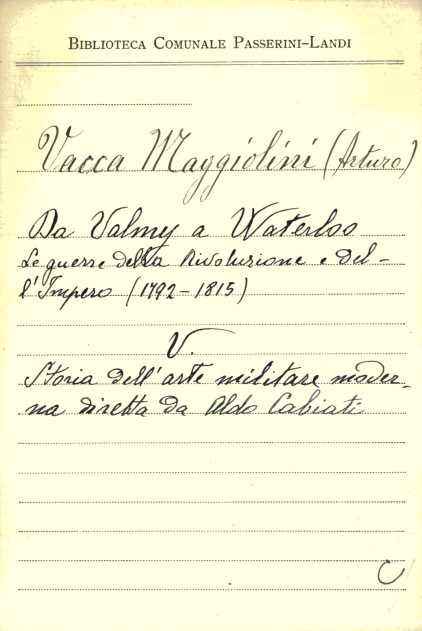 Biblioteca Comunale Passerini-Landi
Vacca Maggiolini (Arturo)
Da Valmy a Waterloo
Le guerre della Rivoluzione e del-
l'Impero (1792-1815)
V.
Storia dell'arte militare moder-
na diretta da Aldo Cabiati
C